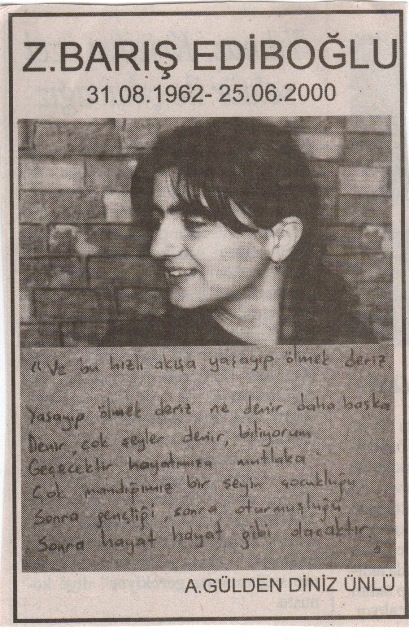 Z.BARIŞ EDİBOĞLU
31.08.1962- 25.06.2000
"Ve bu hızlı akışa yaşayıp ölmek deriz
Yaşayıp ölmek deriz ne denir daha başka
Denir, çok şeyler denir, biliyorum
Geçecektir hayatımıza mutlaka
Çok inandığımız bir şeyin çocukluğu
Sonra gençliği, sonra oturmuşluğu
Sonra hayat hayat gibi olacaktır.
A.GÜLDEN DİNİZ ÜNLÜ